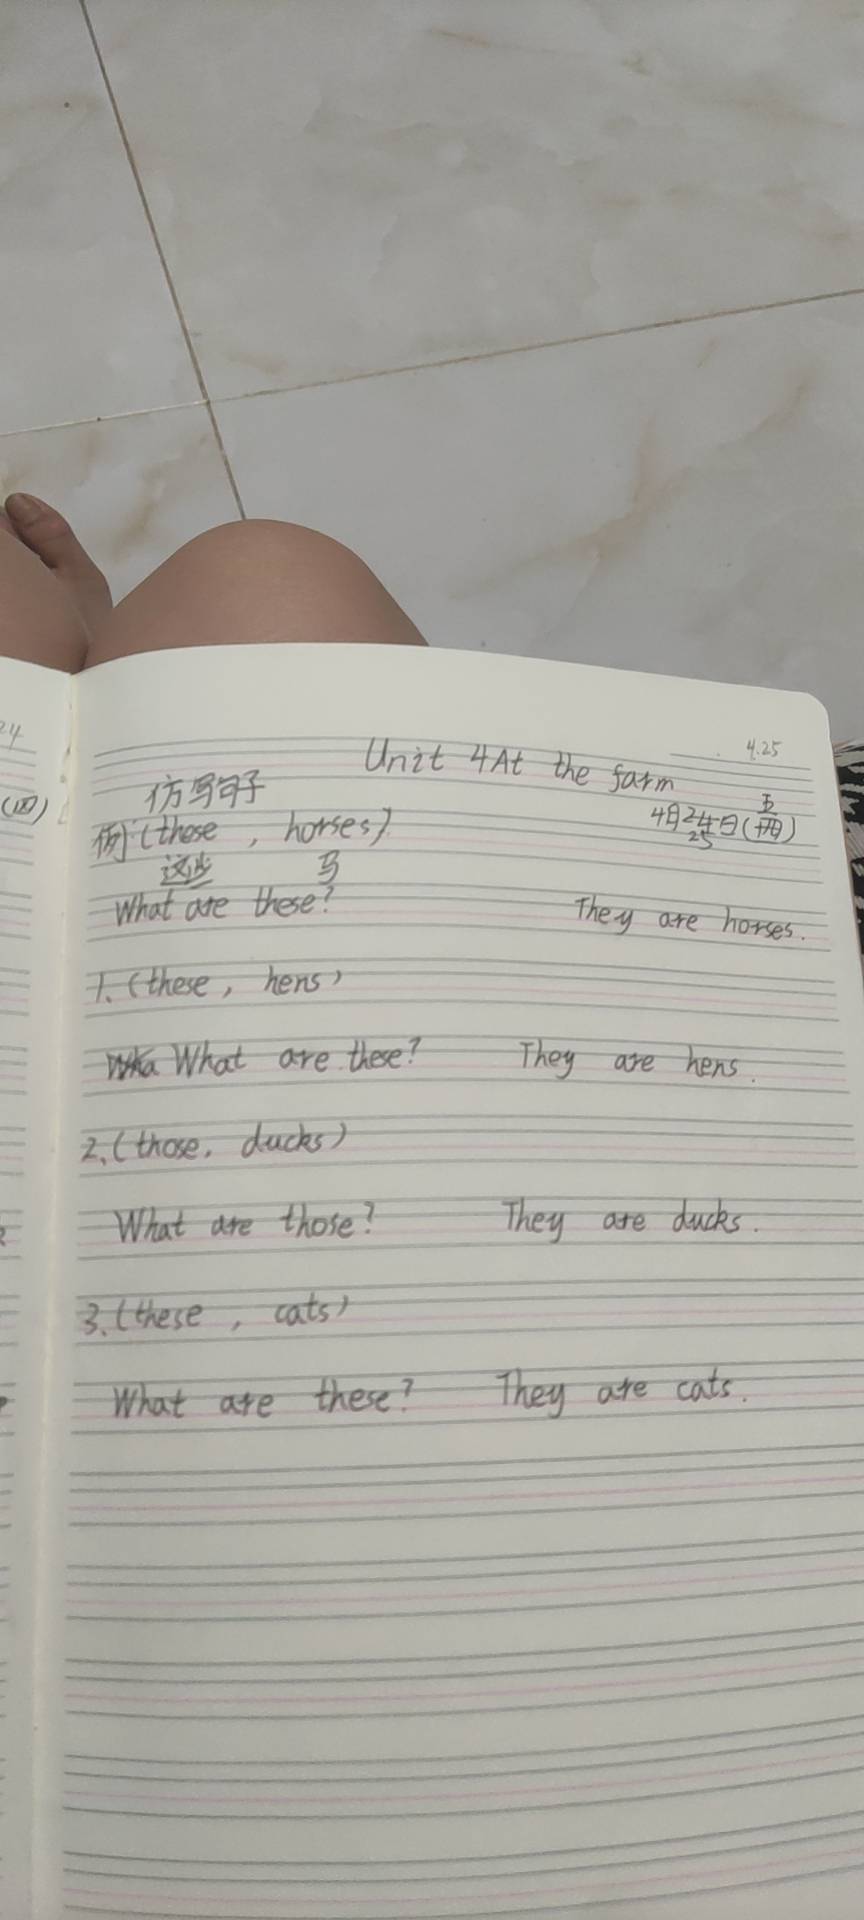 24
(四)
4.25
Unit 4 At the farm
仿写句子
4月24日(四)
25
五
例(these , horses)
这些 马
What are these? They are horses.
1. (these, hens)
What are these? They are hens.
2. (those, ducks)
What are those? They are ducks.
3. (these , cats)
What are these? They are cats.